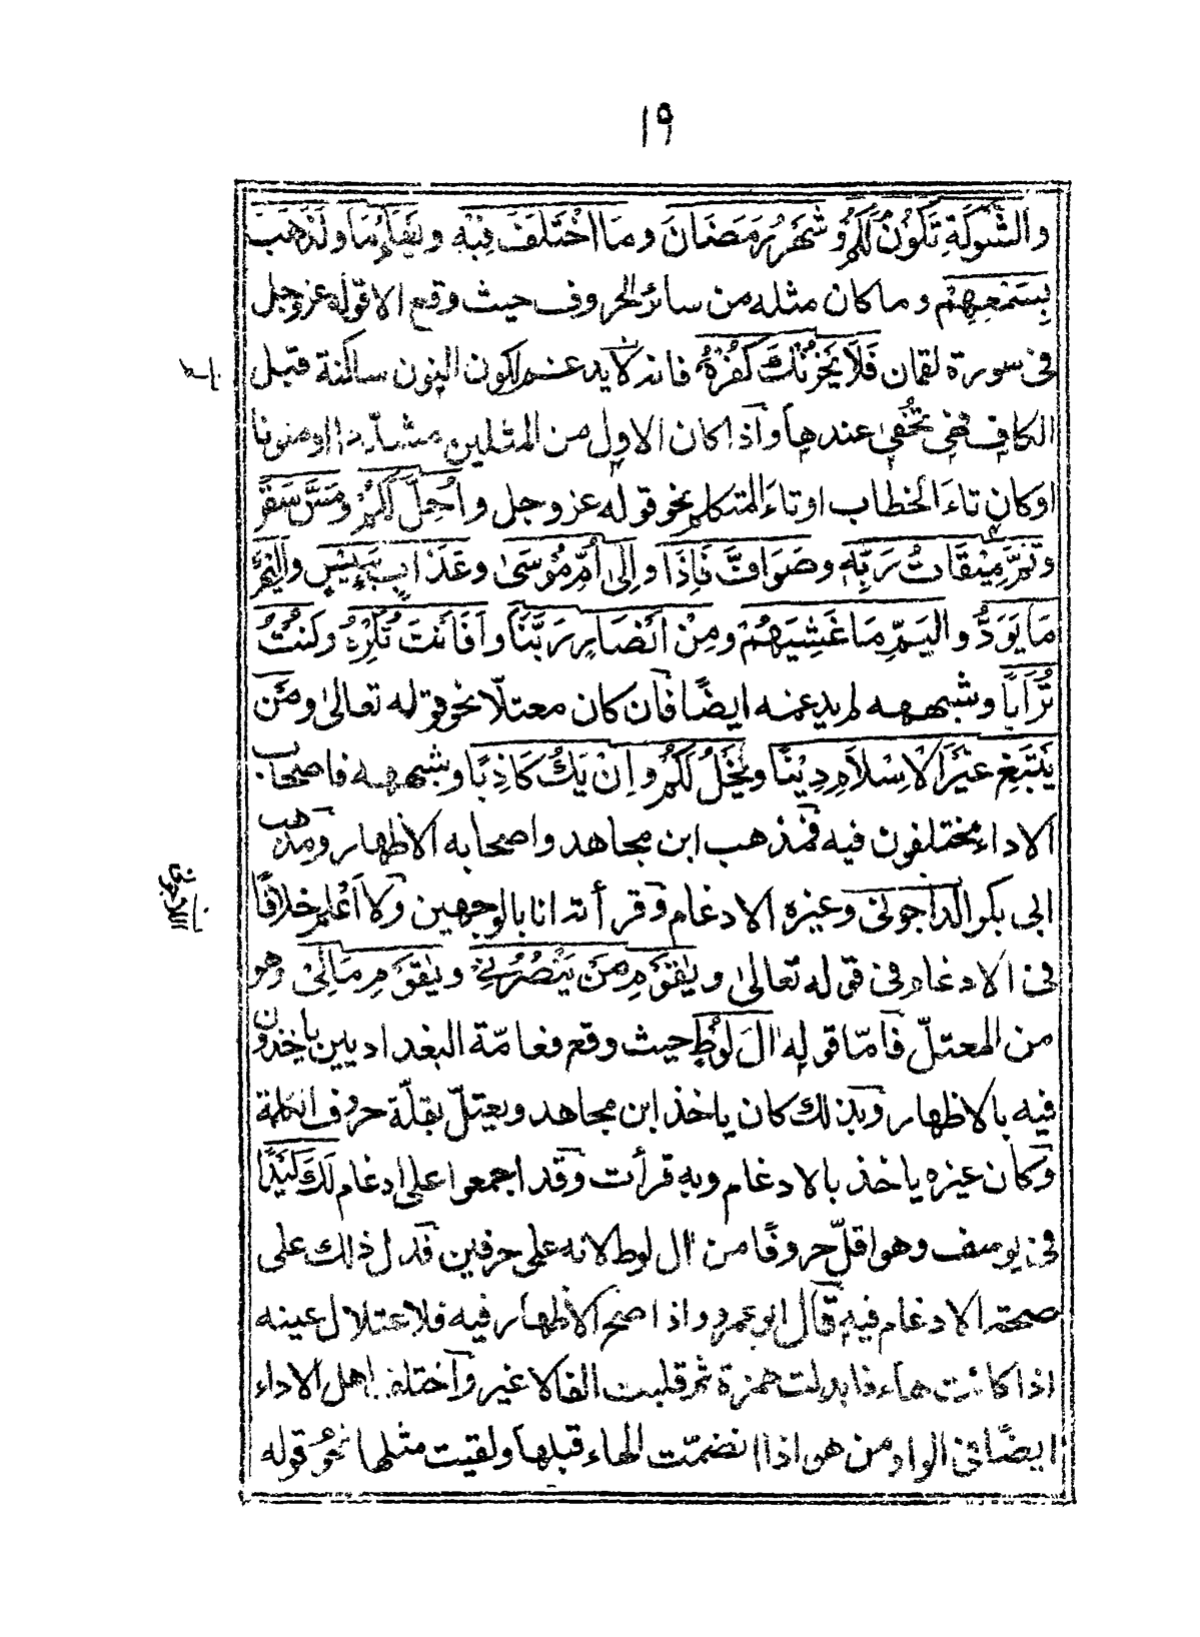 ١٩
والشَّوْكَةِ تَكُوْنُ لَكُمْ وشَهْرُ رَمَضَانَ ومَا اخْتَلَفَ فِيْهِ ونِعْمَائِهَا ولَذَهَبَ
بِسَمْعِهِمْ وما كان مثله من سائر الحروف حيث وقع الا قوله عزوجل
فى سورة لقمان فَلَا يَحْزُنْكَ كُفْرُهُ فانه لا يدغمه لكون النون ساكنة قبل
الكاف فهى تخفى عندها وآذا كان الاول من المثلين مشدّدا او منونا
اوكان تاءَ الخطاب اوتاءَ المتكلم نحو قوله عزوجل واُحِلَّ لَكُمْ ومَسَّ سَقَرَ
وتَمَّ مِيْقَاتُ رَبِّهِ وصَوَافَّ فَاِذَا واِلٰى اُمِّ مُوْسٰى وعَذَابٍ بَئِيْسٍ
مَا يَوَدُّ واليَمِّ مَا غَشِيَهُمْ ومِنْ اَنْصَارٍ رَبَّنَا واَفَاَنْتَ تُكْرِهُ وكُنْتُ
تُرَابًا وشبهه لم يدغمه ايضًا فآن كان معتلّا نحو قوله تعالىٰ ومَنْ
يَبْتَغِ غَيْرَ الْاِسْلَامِ دِيْنًا ويَخْلُ لَكُمْ واِنْ يَكُ كَاذِبًا وشبهه فاصحاب
الاداء مختلفون فيه فمذهب ابن مجاهد واصحابه الاظهار ومذهب
ابى بكر الداجونى وغيره الادغام وقرأته انا بالوجهين ولا اَعْلم خلافًا
فى الادغام فى قوله تعالىٰ ويٰقَوْمِ مَنْ يَّنْصُرُنِيْ ويٰقَوْمِ مَالِىْ وهو
من المعتلّ فآمّا قوله اٰلَ لُوْطٍ حيث وقع فعامّة البغداديين ياخذون
فيه بالاظهار وبذلك كان ياخذ ابن مجاهد ويعتلّ بقلّة حروف الكلمة
وكان غيره ياخذ بالادغام وبه قرأت وقد اجمعوا على ادغام لَكَ كَيْدًا
فى يوسف وهو اقلّ حروفًا من اٰل لوط لانه على حرفين فدل ذلك على
صحة الادغام فيه قال ابوعمرو واذا صح الاظهار فيه فلاعتلال عينه
اذا كانت هاء فابدلت همزة ثم قلبت الفا لا غير وآختلف اهل الاداء
ايضًا فى الواو من هو اذا انضمّت الهاء قبلها ولقيت مثلها نحو قوله